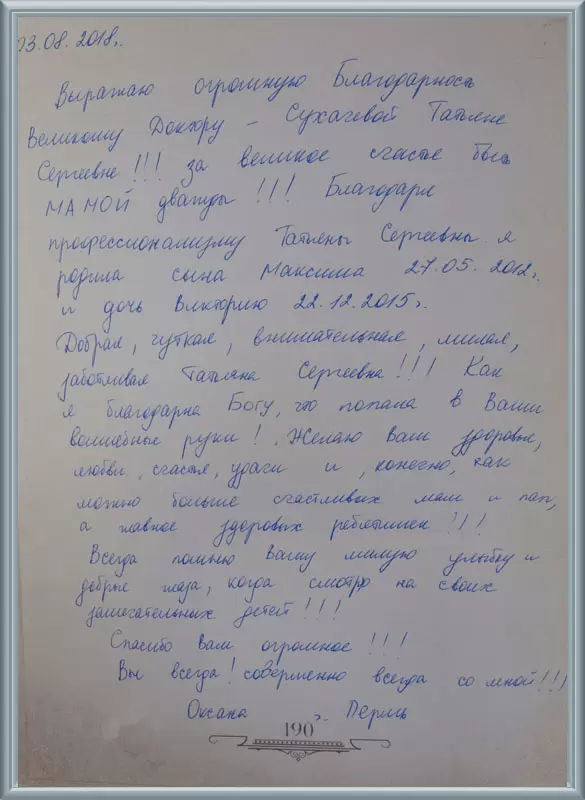 03.08.2018г.
Выражаю огромную Благодарность
Великому Доктору – Сухачевой Татьяне
Сергеевне!!! за великое счастье быть
МАМОЙ дважды!!! Благодаря
профессионализму Татьяны Сергеевны я
родила сына Максима 27.05.2012г.
и дочь Викторию 22.12.2015г.
Добрая, чуткая, внимательная, милая,
заботливая Татьяна Сергеевна!!! Как
я благодарна Богу, что попала в Ваши
волшебные руки! Желаю Вам здоровья,
любви, счастья, удачи и, конечно, как
можно больше счастливых мам и пап,
а главное здоровых ребятишек!!!
Всегда помню Вашу милую улыбку и
добрые глаза, когда смотрю на своих
замечательных детей!!!
Спасибо Вам огромное!!!
Вы всегда! совершенно всегда со мной!!!
Оксана г. Пермь
190